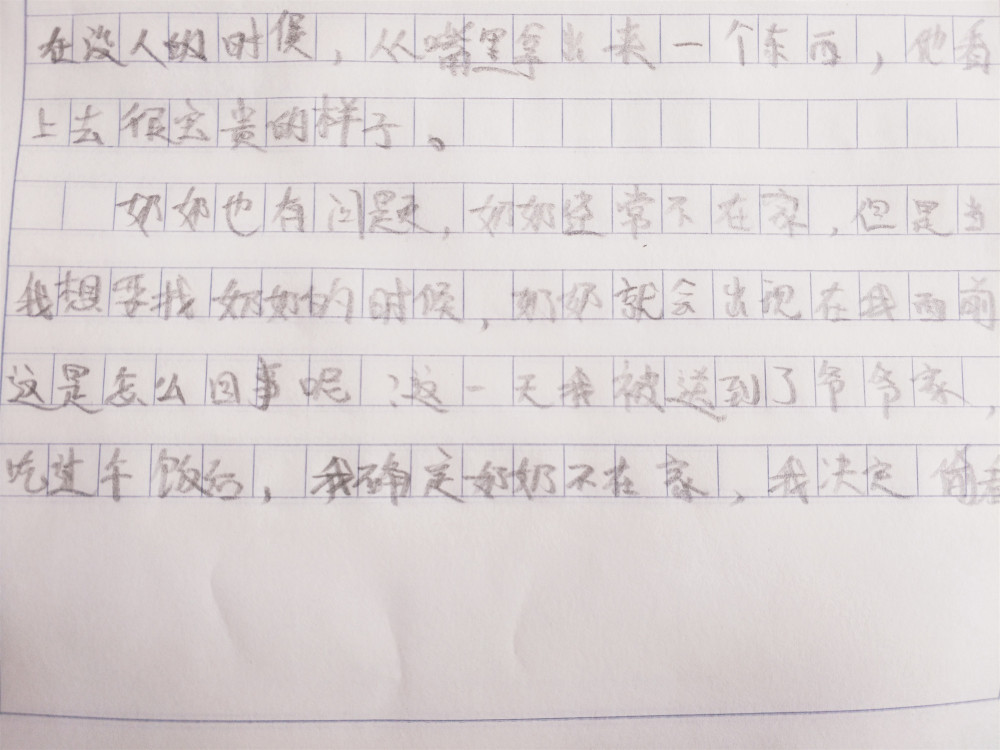 在没人的时候，从嘴里拿出来一个东西，他看
上去很宝贵的样子。
奶奶也有问题，奶奶经常不在家，但是当
我想要找奶奶的时候，奶奶就会出现在我面前
这是怎么回事呢？这一天我被送到了爷爷家，
吃过午饭后，我确定奶奶不在家，我决定偷